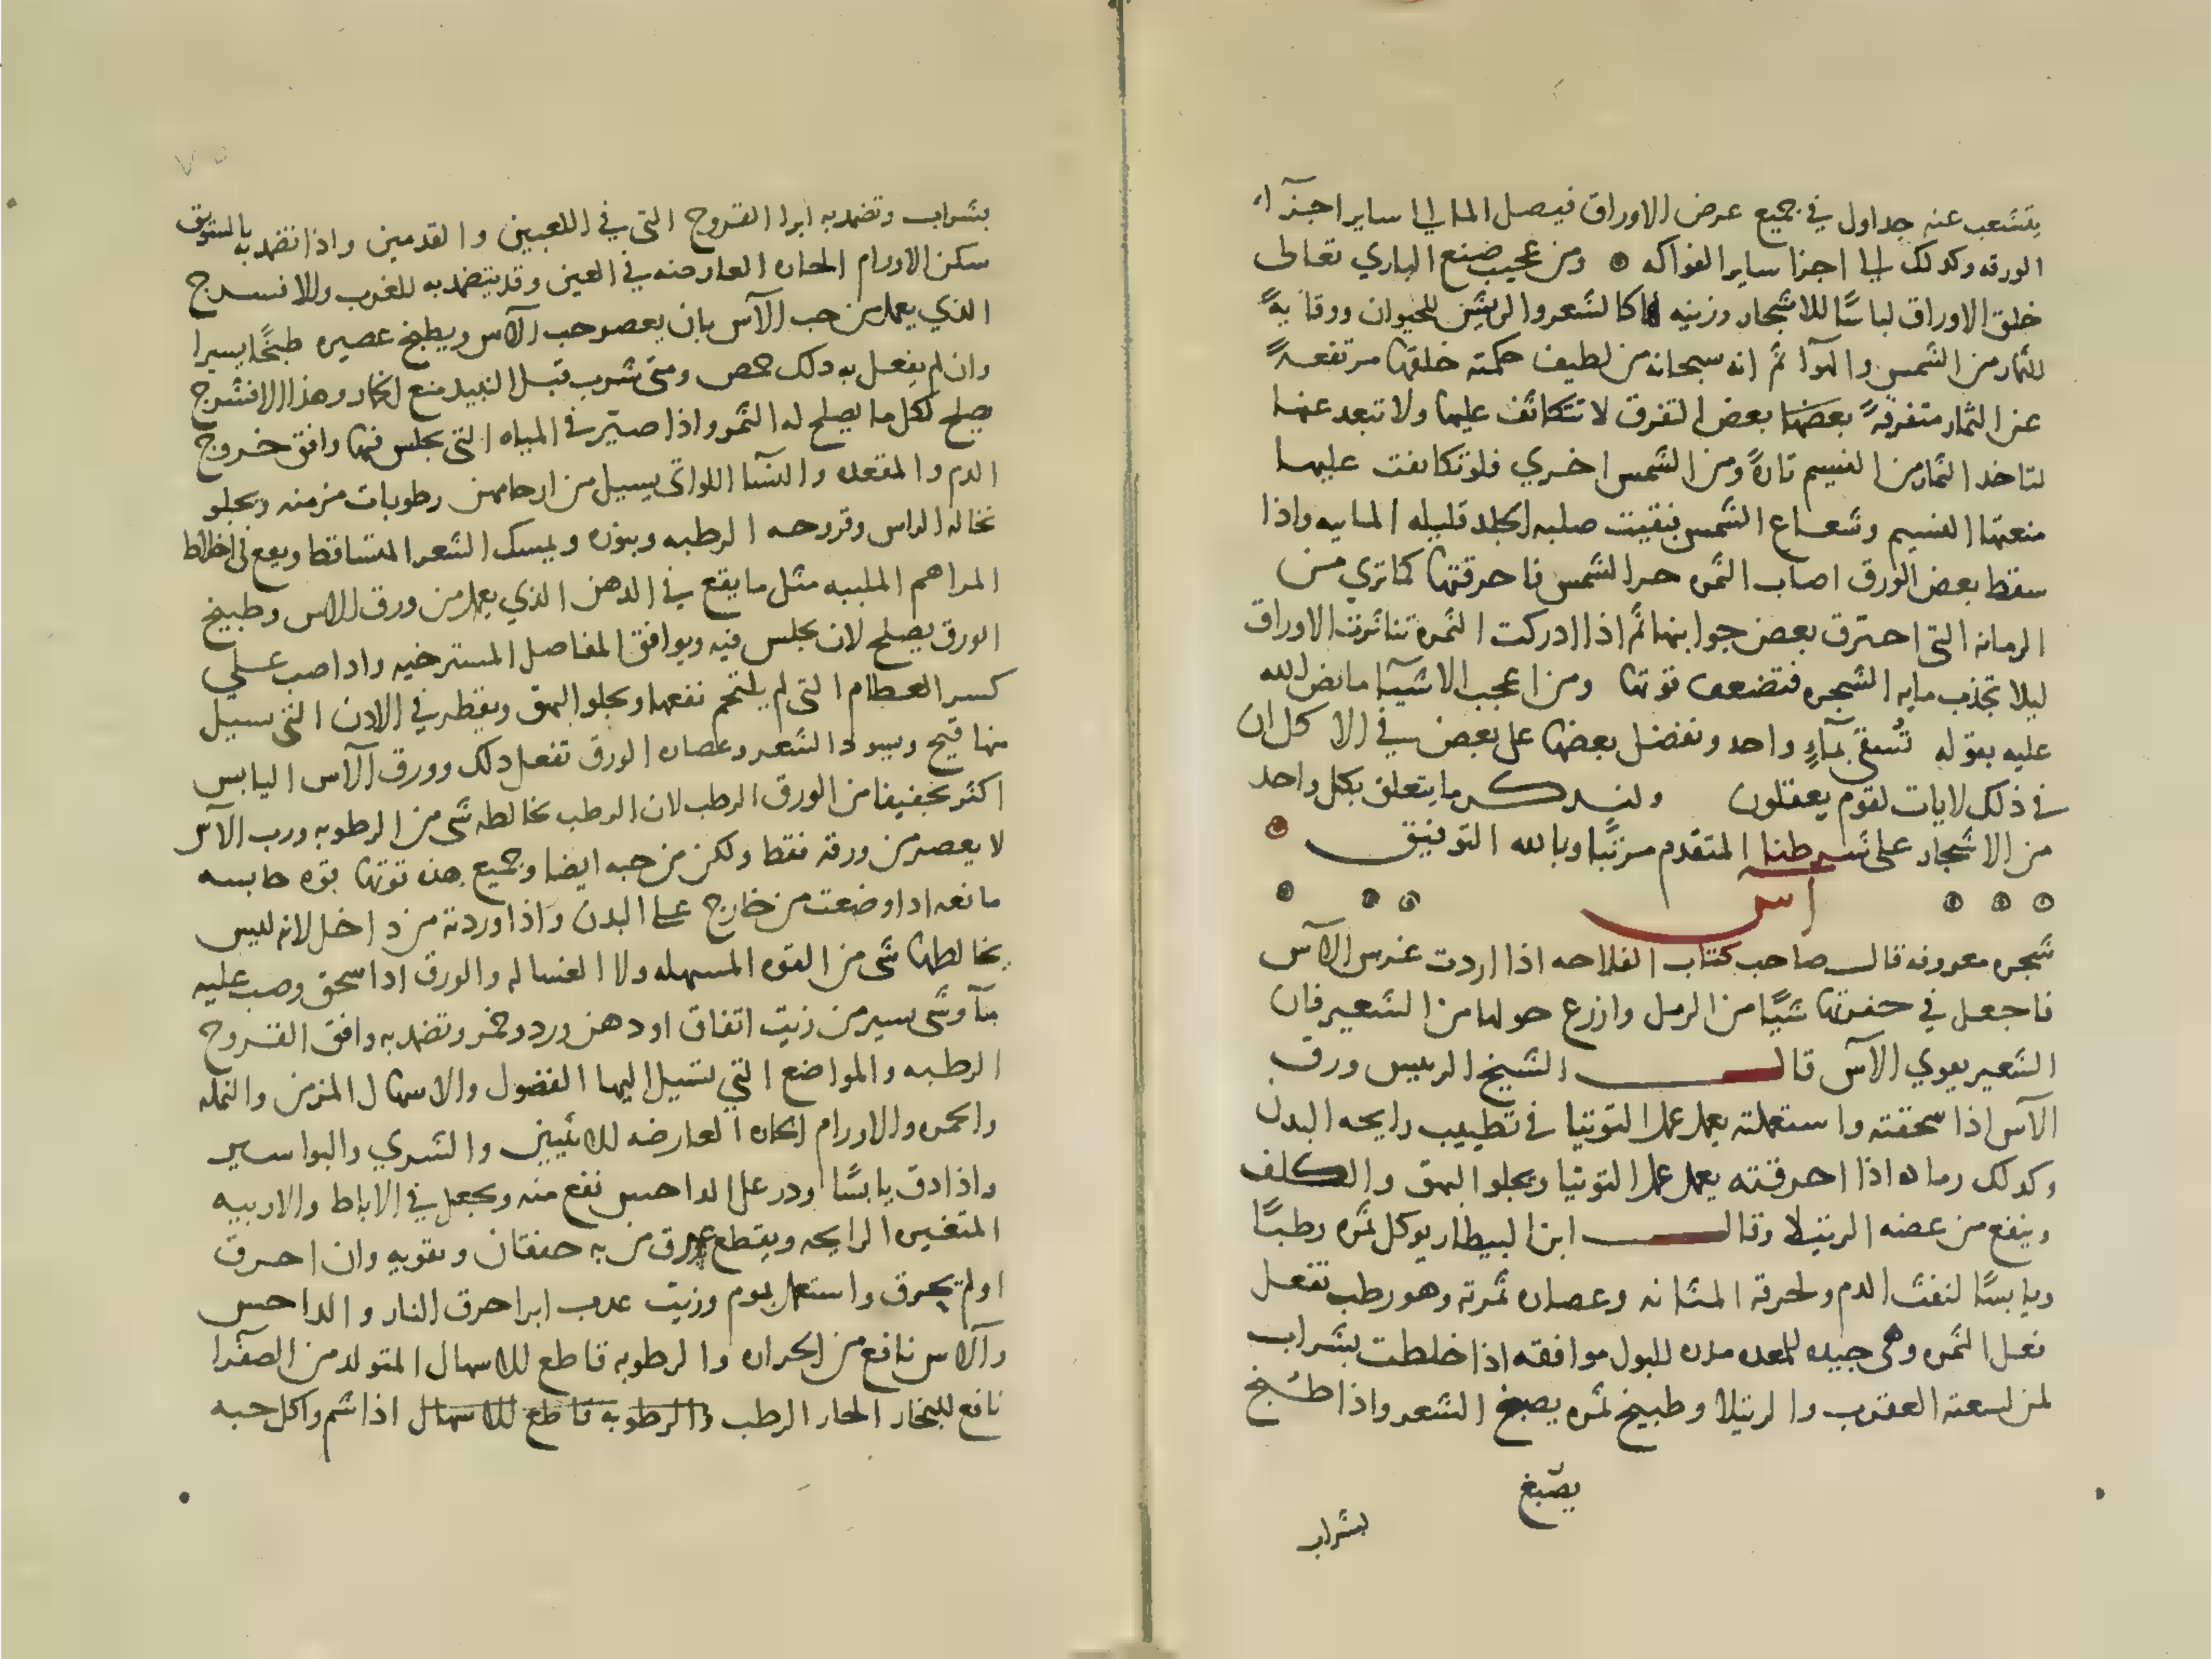 يتشعب عنه جداول في جميع عرض الاوراق فيصل الما الي ساير اجزآء
الورقه وكدلك الي اجزا ساير الفواكه ومن عجيب صنع الباري تعالى
خلق الاوراق لباسًا للاشجار وزينه كالشعر والريش للحيوان ووقايةً
للثمار من الشمس والهوآ ثم انه سبحانه من لطيف حكمته خلقها مرتفعةً
عن الثمار متفرقةً بعضها بعض التفرق لا تتكاثف عليها ولا تبعد عنها
لتاخد الثمار من النسيم تارةً ومن الشمس اخري فلو تكاثفت عليها
منعتها النسيم وشعاع الشمس فبقيت صلبه الجلد قليله المايه واذا
سقط بعض الورق اصاب الثمره حر الشمس فاحرقتها كما تري من
الرمانه التي احترق بعض جوانبها ثم اذا ادركت الثمره تناثرت الاوراق
ليلا تجذب مايه الشجره فتضعف قوتها ومن اعجب الاشيآ ما نص الله
عليه بقوله تُسقى بمآءٍ واحد ونفضل بعضها على بعض في الاكل ان
في ذلك لايات لقوم يعقلون ولنذكر ما يتعلق بكل واحد
من الاشجار على شرطنا المتقدم مرتبًا وبالله التوفيق
آس
شجره معروفه قال صاحب كتاب الفلاحه اذا اردت غرس الآس
فاجعل في حفرتها شيًا من الرمل وازرع حولها من الشعير فان
الشعير يقوي الآس قال الشيخ الرييس ورق
الآس اذا سحقته واستعملته يعمل عمل التوتيا في تطييب رايحه البدن
وكدلك رماده اذا احرقته يعمل عمل التوتيا ويجلو البهق والكلف
وينفع من عضه الرتيلا وقال ابن البيطار يوكل ثمره رطبًا
ويابسًا لنفث الدم ولحرقة المثانه وعصاره ثمرته وهو رطب تفعل
فعل الثمره وهي جيده للمعده مدره للبول موافقه اذا خلطت بشراب
لمن لسعته العقرب والرتيلا وطبيخ ثمره يصبغ الشعر واذا طبخ
يصبغ
بشراب
بشراب وتضمد به ابرا القروح التي في الكعبين والقدمين واذا تضمد به بالسويق
سكن الاورام الحاره العارضه في العين وقد يتضمد به للغرب والافسرج
الذي يعمل من حب الآس بان يعصر حب الآس ويطبخ عصيره طبخًا يسيرا
وان لم يفعل به دلك حمض ومتى شرب قبل النبيد منع الخمار وهذا الافشرج
يصلح لكل ما يصلح له الثمر واذا صير في المياه التي يجلس فيها وافق خروج
الدم والمقعده والنسآ اللواتي يسيل من ارحامهن رطوبات مزمنه ويجلو
نخاله الراس وقروحه الرطبه وبثوره ويمسك الشعر المتساقط ويقع في اخلاط
المراهم الملينه مثل ما يقع في الدهن الذي يعمل من ورق الاس وطبيخ
الورق يصلح لان يجلس فيه ويوافق المفاصل المسترخيه واداصب علي
كسر العظام التي لم يلتحم نفعها ويجلو البهق ويقطر في الادن التي يسيل
منها قيح ويسود الشعر وعصاره الورق تفعل دلك وورق الآس اليابس
اكثر تجفيفا من الورق الرطب لان الرطب يخالطه شي من الرطوبه ورب الآس
لا يعصر من ورقه فقط ولكن من حبه ايضا وجميع هذه قوتها قوه حابسه
مانعه ادا وضعت من خارج على البدن واذا وردته من داخل لانه ليس
يخالطها شي من القوه المسهله ولا الغساله والورق ادا سحق وصب عليه
مآ وشي يسير من زيت انفاق او دهن ورد وخمر وتضمد به وافق القروح
الرطبه والمواضع التي تسيل اليها الفضول والاسهال المزمن والنمله
والحمره والاورام الحاره العارضه للانثيين والشري والبواسير
واذا دق يابسًا ودر على الداحس نفع منه ويجعل في الاباط والاربيه
المتغيره الرايحه ويقطع عرق من به خفقان ويقويه وان احرق
او لم يحرق واستعمل بموم وزيت عدب ابرا حرق النار والداحس
والآس نافع من الحراره والرطوبه قاطع للاسهال المتولد من الصفرا
نافع للبخار الحار الرطب والرطوبه قاطع للاسهال اذا شم واكل حبه